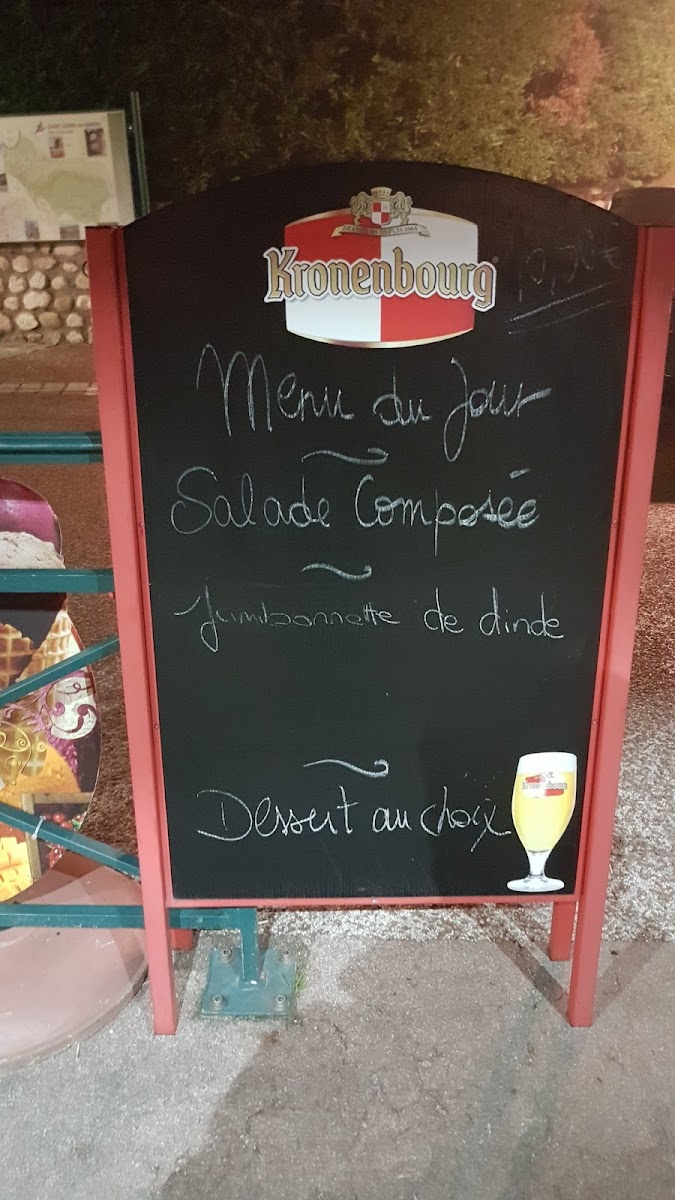 Kronenbourg
Menu du Jour
Salade Composée
Jambonnette de dinde
Dessert au choix
Kronenbourg